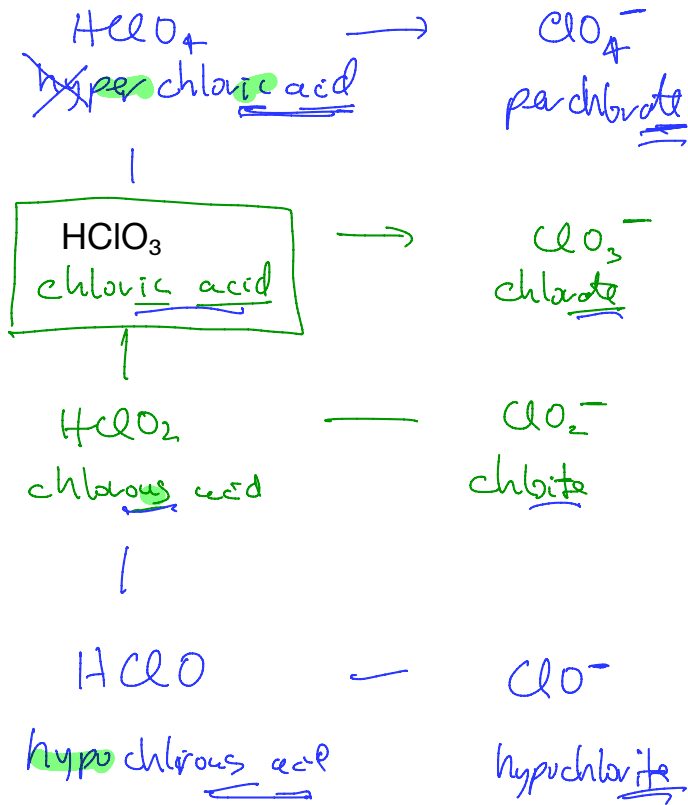 HClO₄ → ClO₄⁻
hyper chloric acid perchlorate
HClO₃ → ClO₃⁻
chloric acid chlorate
HClO₂ — ClO₂⁻
chlorous acid chlorite
HClO — ClO⁻
hypochlorous acid hypochlorite